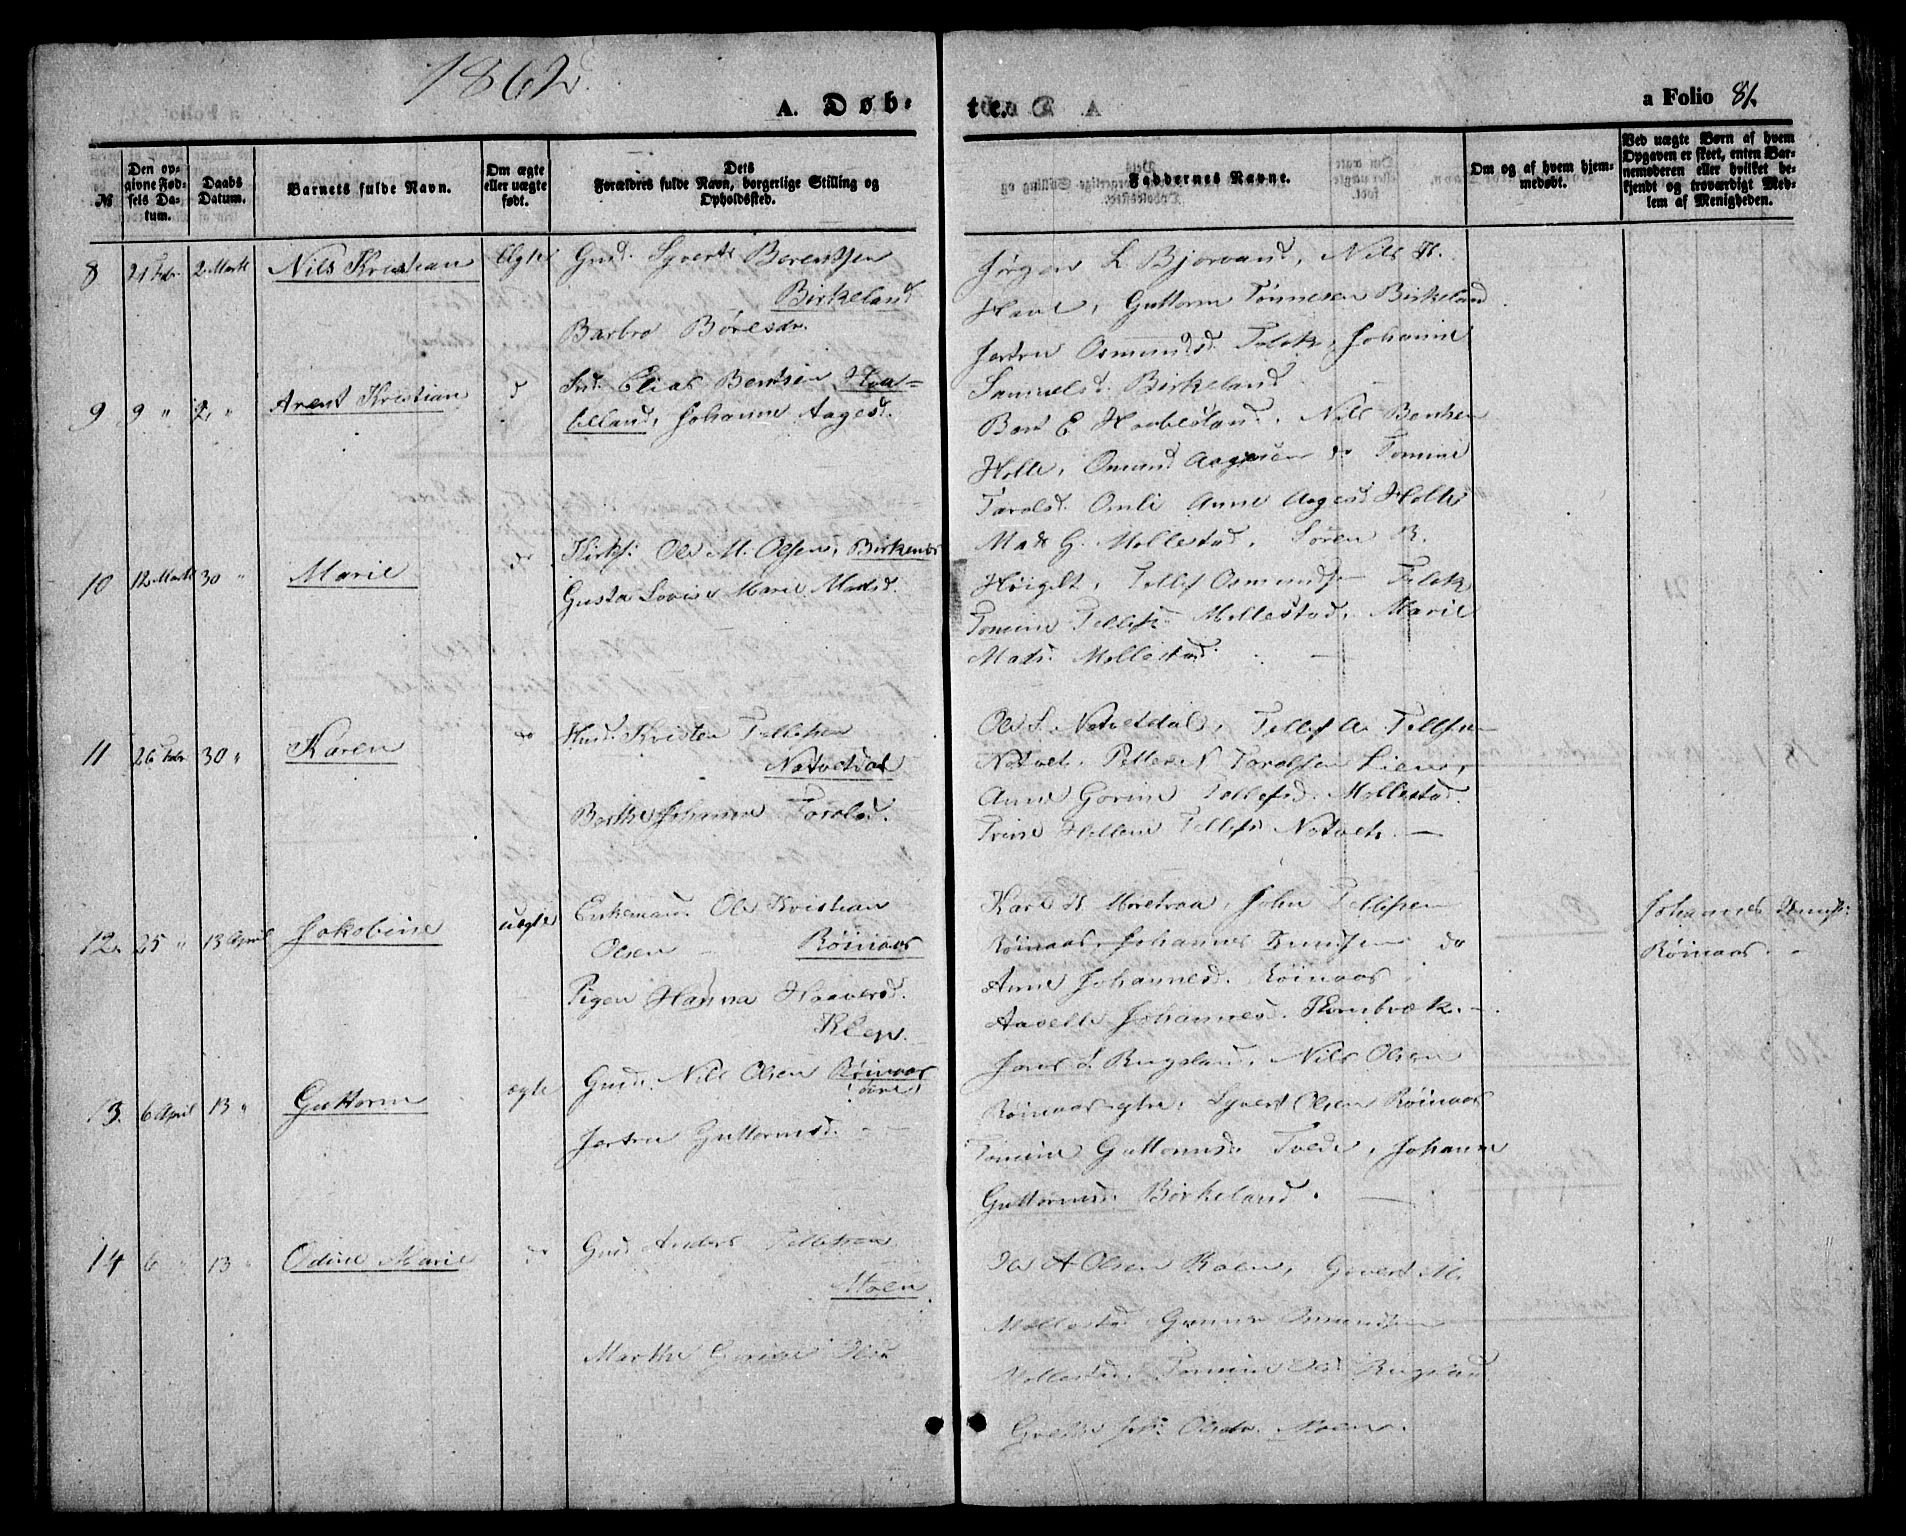 1862
A. Døb-
te.
a Folio 81.
№
Den opgivne Fødsels Datum.
Daabs Datum.
Barnets fulde Navn.
Om ægte eller uægte født.
Dets Forældres fulde Navn, borgerlige Stilling og Opholdssted.
Faddernes Navne.
Om og af hvem hjemmedøbt.
Ved uægte Børn af hvem Opgaven er skeet, enten Barnemoderen eller hvilket bekjendt og troværdigt Medlem af Menigheden.
8 21 Febr 2 Marts Nils Kristian Ægte Gmd. Syvert Berentsen
Birkeland
Barbro Børesdr.
Jørgen L Bjorvand, Nils H.
Have, Guttorm Tønnesen Birkeland
Jertru Osmundsd. Foldk, Johanne
Samuelsd. Birkeland
9 9 " 2 " Arent Kristian d Elias Bentsen, Hob-
belland, Johanne Aagesd.
E Hobbesland, Nils Bentsen
Holte, Omund Aagesen do Tomine
Tarolsd. Omli Anne Aagesd Holte
10 12 Marts 30 " Marie do Ole M. Olsen, Birkenes
Gusta Lovise Marie Madsd.
Mads G. Mollestad, Søren B.
Høigilt, Tellef Osmundsen
Tomine Tellefsd. Mollestad, Marie
Mads. Mollestad.
11 26 Febr 30 " Karen do Kristen Tellefsen
Natvetdal
Berthe Johanne Tarolsd.
Ole L. Natvetdal, Tellef A Tellefsen
Natvet, Pelle Tarolsen Lien,
Anne Gorine Tellefsd. Mollestad.
Trine Hellene Tellefsd. Natvet. —
12. 25 " 13 April Jakobine uægte Enkemand Ole Kristian
Olsen — Røinaas
Pigen Hanna Haaversd.
Klep
Kari K Moretraa, John Tellefsen
Røinaas, Johannes Knudsen do
Anne Johannesd. Røinaas,
Aaselle Johannesd. Tornbræk. —
Johannes Knuds:
Røinaas. —
13. 6 April 13 " Guttorm ægte Gmd. Nils Olsen Røinaas
øvre
Jertru Guttormsd. —
Jens L Rugsland, Nils Olsen
Røinaas ytre, Syvert Olsen Røinaas
Tomine Guttormsd. Tvede, Johanne
Guttormsd. Birkeland. —
14 6 " 13 " Odine Marie do Gmd. Anders Tellefsen
Moen
Marthe Gurine Olsd
A Olsen Moen, Govert M.
Mollestad, Gunne Osmundsen
Mollestad, Tomine Olsd Rugsland
Grethe Olsdr. Moen.